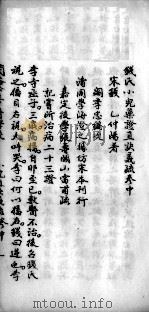 錢氏小兒藥證直訣義疏卷中
宋錢乙仲陽著
閻孝忠編次
清周學海澂之據仿宋本刊行
嘉定後學張壽頤山雷甫疏
記嘗所治病二十三證
李寺丞子三歲發搐自卯至巳數醫不治後召錢氏
視之搐目右視大叫哭李曰何以搐右錢曰逆也李